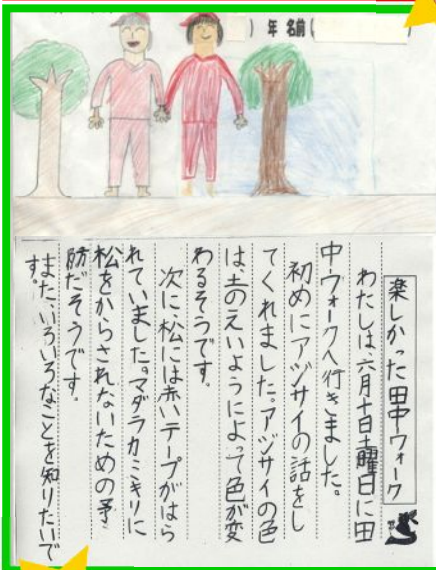 ）年 名前（
楽しかった田中ウォーク
わたしは、六月十日土曜日に田
中ウォークへ行きました。
初めにアヅサイの話をし
てくれました。アヅサイの色
は、土のえいようによって色が変
わるそうです。
次に、松には赤いテープがはら
れていました。マダラカミキリに
松をからされないための予
防だそうです。
また、いろいろなことを知りたいで
す。